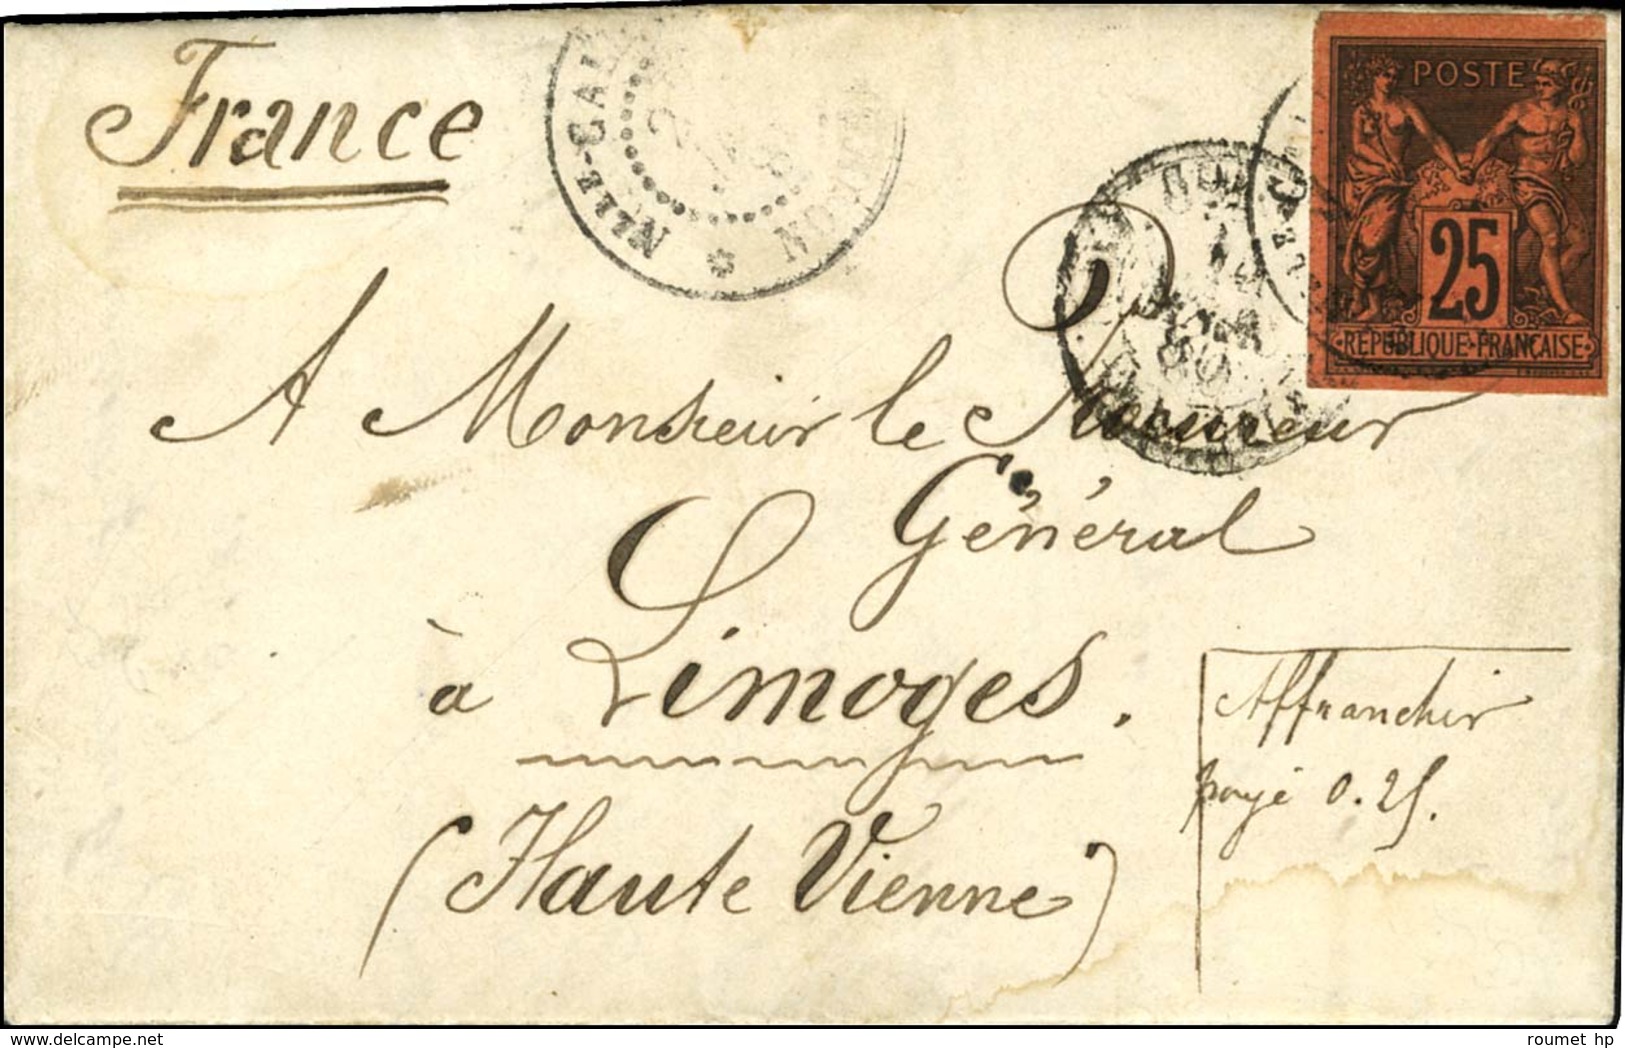 France
NLLE-CAL
POSTE
25
RÉPUBLIQUE FRANÇAISE
A Monsieur le Procureur
Général
à Limoges.
(Haute Vienne)
Affranchir
payé 0.25.
roumet hp